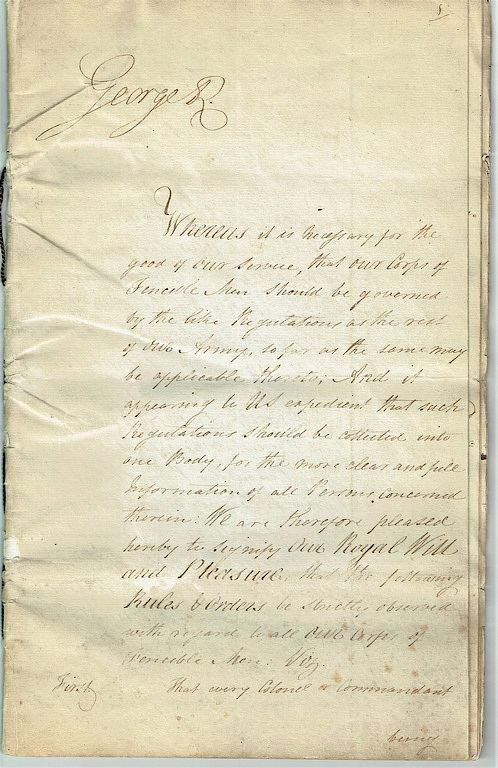 George R.
Whereas it is necessary for the
good of our Service, that our Corps of
Fencible Men should be governed
by the like Regulations as the rest
of our Army, so far as the same may
be applicable thereto; And it
appearing to US expedient that such
Regulations should be collected into
one Body, for the more clear and full
Information of all Persons concerned
therein: We are therefore pleased
hereby to signify Our Royal Will
and Pleasure, that the following
Rules & Orders be strictly observed
with regard to all Our Corps of
Fencible Men: Viz.
First, That every Colonel or Commandant
being